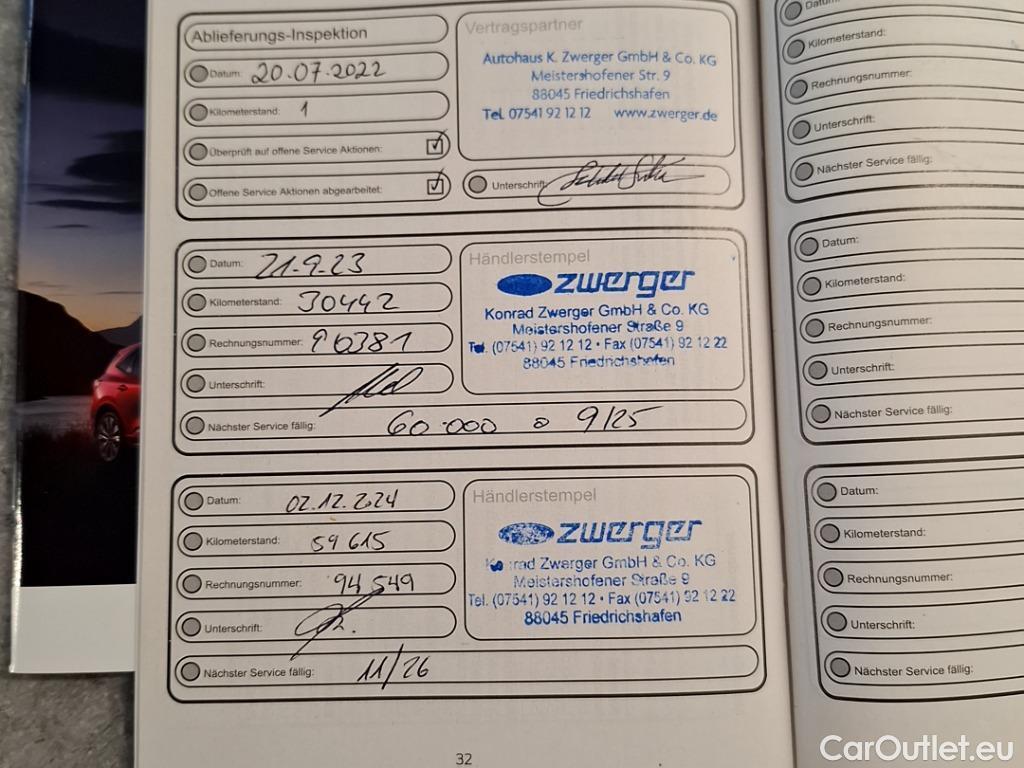 Ablieferungs-Inspektion
Datum: 20.07.2022
Kilometerstand: 1
Überprüft auf offene Service Aktionen:
Offene Service Aktionen abgearbeitet:
Vertragspartner
Autohaus K. Zwerger GmbH & Co. KG
Meistershofener Str. 9
88045 Friedrichshafen
Tel. 07541 92 12 12 www.zwerger.de
Unterschrift:
Datum: 21.9.23
Kilometerstand: 30442
Rechnungsnummer: 96381
Unterschrift:
Nächster Service fällig: 60.000 o 9/25
Händlerstempel
zwerger
Konrad Zwerger GmbH & Co. KG
Meistershofener Straße 9
Tel. (07541) 92 12 12 • Fax (07541) 92 12 22
88045 Friedrichshafen
Datum: 02.12.2024
Kilometerstand: 59615
Rechnungsnummer: 94549
Unterschrift:
Nächster Service fällig: 11/26
Händlerstempel
zwerger
Konrad Zwerger GmbH & Co. KG
Meistershofener Straße 9
Tel. (07541) 92 12 12 • Fax (07541) 92 12 22
88045 Friedrichshafen
32
Datum:
Kilometerstand:
Rechnungsnummer:
Unterschrift:
Nächster Service fällig:
Datum:
Kilometerstand:
Rechnungsnummer:
Unterschrift:
Nächster Service fällig:
Datum:
Kilometerstand:
Rechnungsnummer:
Unterschrift:
Nächster Service fällig:
CarOutlet.eu